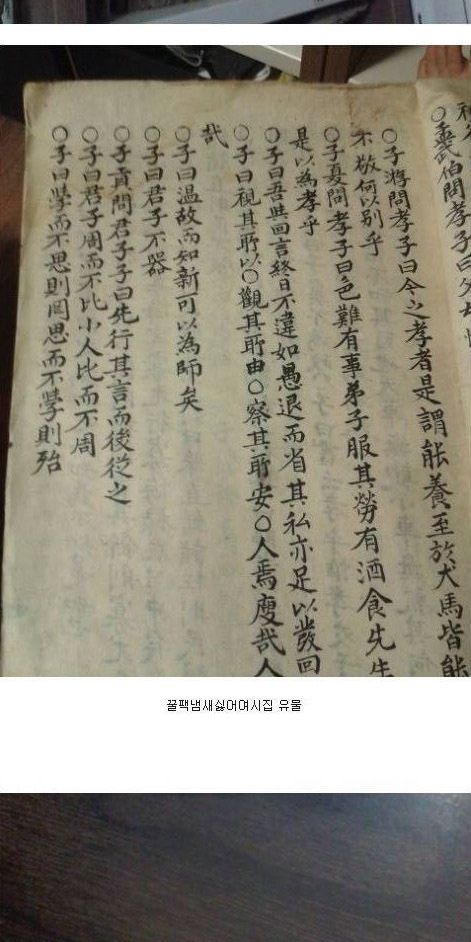 ○孟武伯問孝子曰父母
○子游問孝子曰今之孝者是謂能養至於犬馬皆能
不敬何以別乎
○子夏問孝子曰色難有事弟子服其勞有酒食先生
是以為孝乎
○子曰吾與回言終日不違如愚退而省其私亦足以發回
○子曰視其所以○觀其所由○察其所安○人焉廋哉人
哉
○子曰温故而如新可以為師矣
○子曰君子不器
○子貢問君子子曰先行其言而後從之
○子曰君子周而不比小人比而不周
○子曰學而不思則罔思而不學則殆
꿀팩냄새싫어여시집 유물